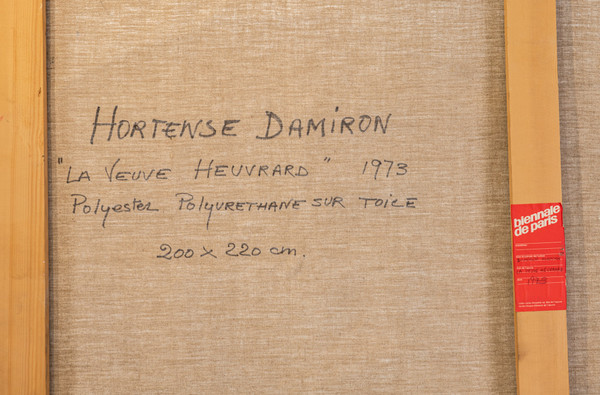 HORTENSE DAMIRON
"LA VEUVE HEUVRARD" 1973
Polyester Polyurethane sur toile
200 x 220 cm.
biennale
de paris